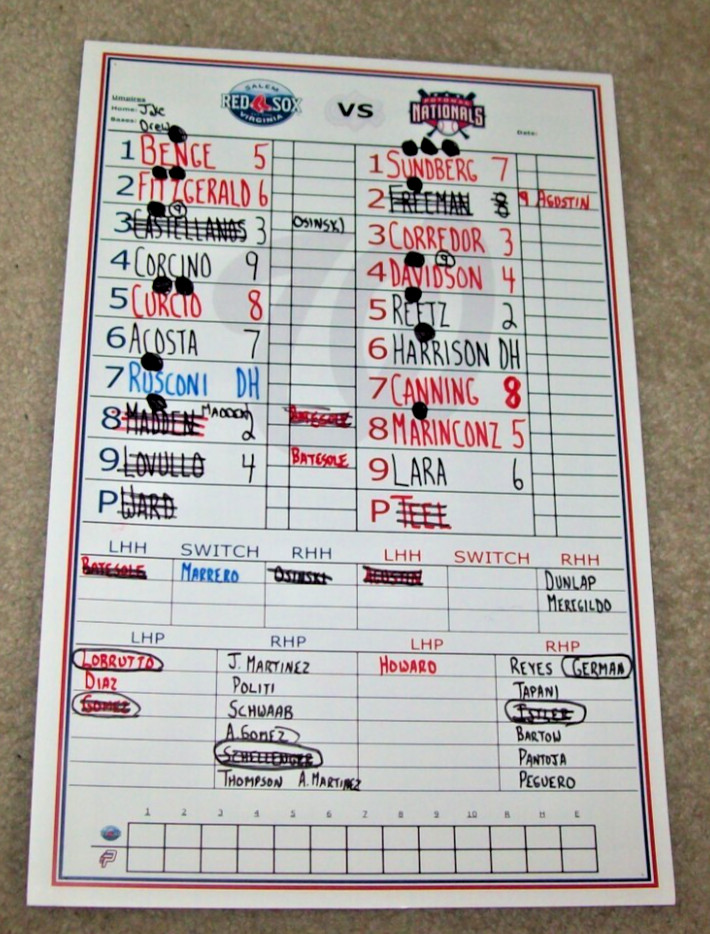 Umpires
Home: Jake
Bases: Drew
SALEM
RED SOX
VIRGINIA
VS
POTOMAC
NATIONALS
Date:
1 BENGE 5
2 FITZGERALD 6
3 CASTELLANOS 3 OSINSKI
4 CORCINO 9
5 CURCIO 8
6 ACOSTA 7
7 RUSCONI DH
8 MADDEN MADDEN 2 BATESOLE
9 LOVULLO 4 BATESOLE
P WARD
1 SUNDBERG 7
2 FREEMAN 8 9 AGUSTIN
3 CORREDOR 3
4 DAVIDSON 4
5 REETZ 2
6 HARRISON DH
7 CANNING 8
8 MARINCONZ 5
9 LARA 6
P TEEL
LHH SWITCH RHH LHH SWITCH RHH
BATESOLE MARRERO OSINSKI AGUSTIN DUNLAP
MEREGILDO
LHP RHP LHP RHP
LOBRUTTO J. MARTINEZ HOWARD REYES GERMAN
DIAZ POLITI TAPANI
GOMEZ SCHWAAB ISTLER
A. GOMEZ BARTOW
SCHELLENGER PANTOJA
THOMPSON A. MARTINEZ PEGUERO
1 2 3 4 5 6 7 8 9 10 R H E